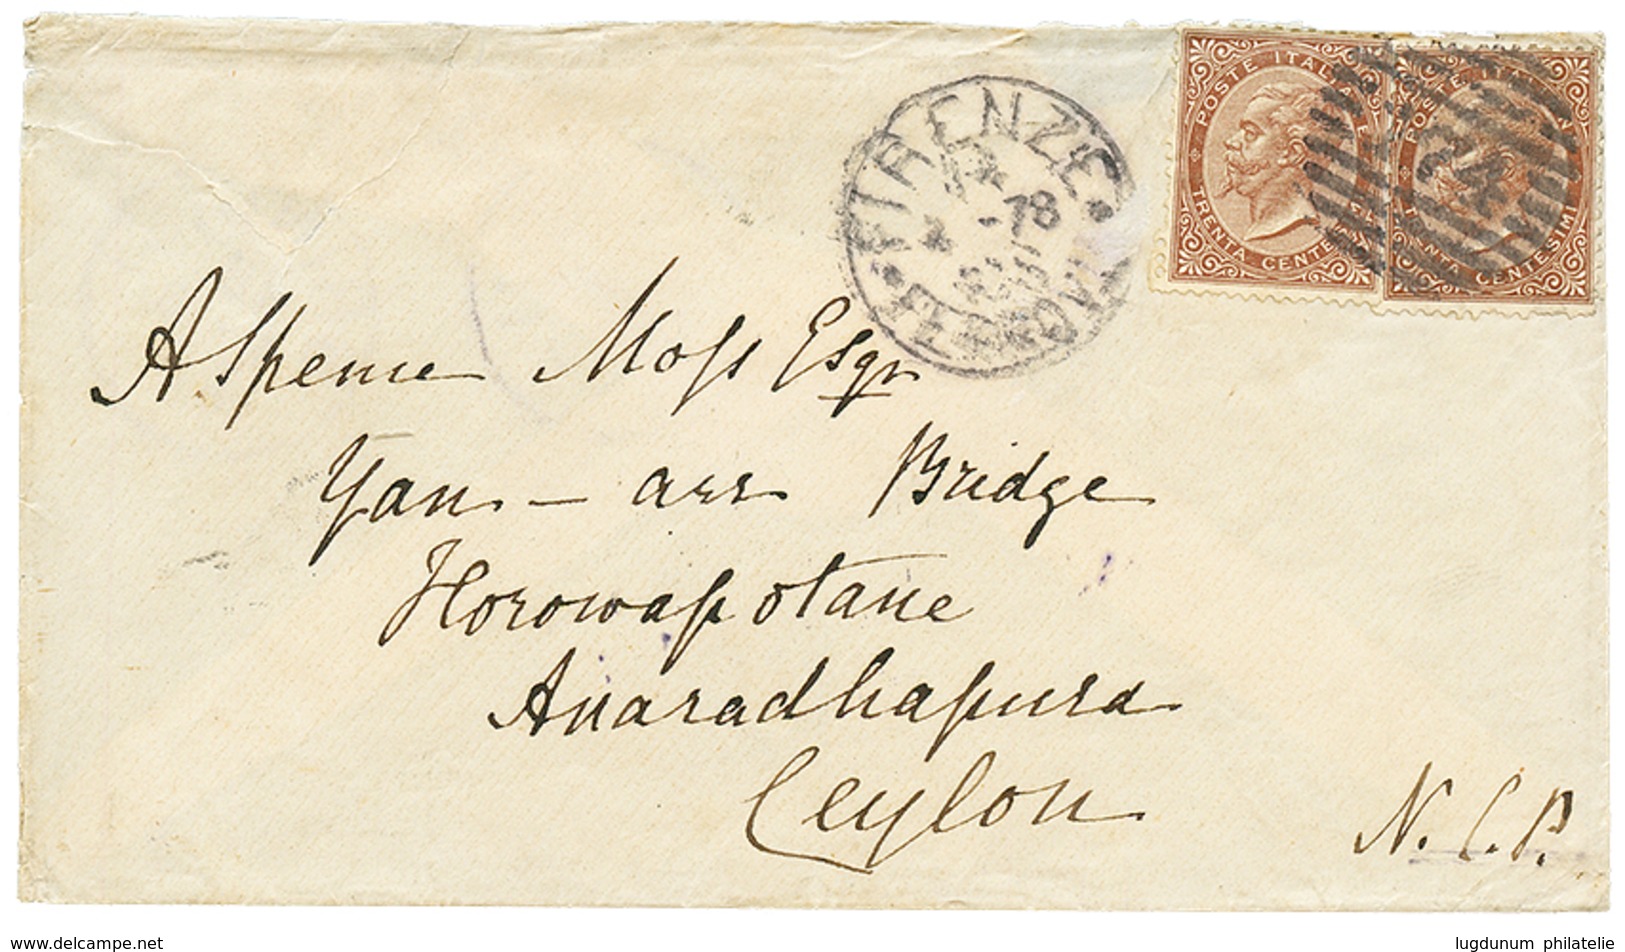 POSTE ITALIANE
TRENTA CENTESIMI
POSTE ITALIAN
TRENTA CENTESIMI
24
FIRENZE
-78
FERROVIA
A Spense Moss Esqr
Yan-arr Bridge
Horowapotane
Anaradhapura
Ceylon
N.C.P.
www.delcampe.net
lugdunum philatelie